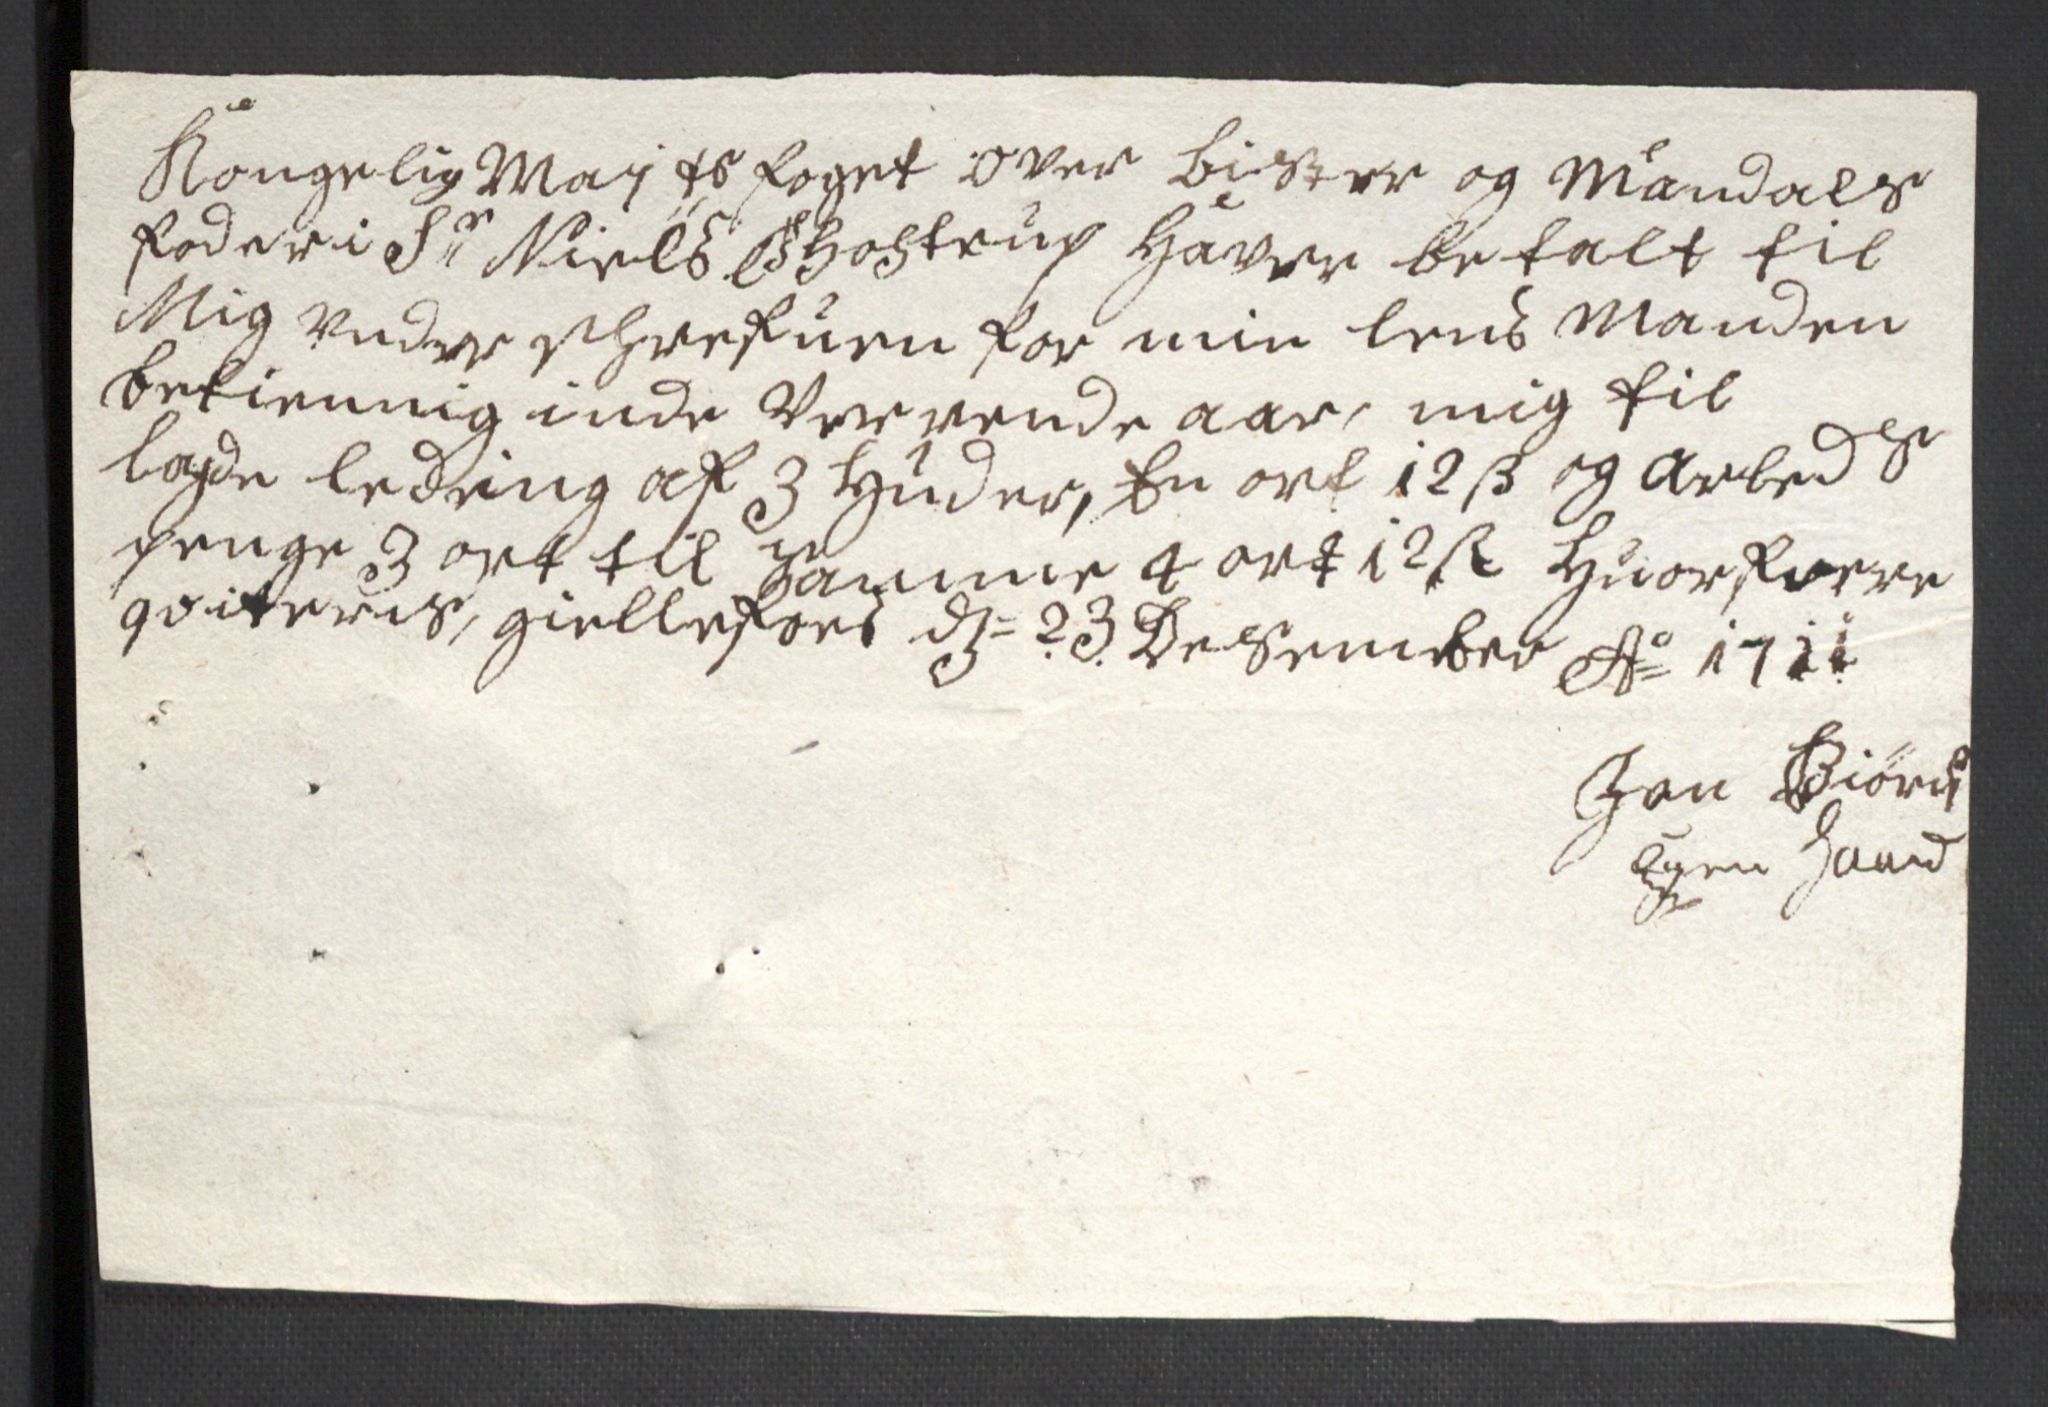 Kongelig Maÿ ts foget over Lister og Mandals
foderi Sr Niels Ghostrup Haver betalt til
Mig under schrefuen for min lens Manden
bekiennig inde Verrende aar, mig til
lagde ledring af 3 Huder, En ort 12 ß og Arbeds
penge 3 ort til Samme 4 ort 12 ß Huorfuere
qviteris, giellefoes dn= 23 Desember Ao= 1711
Jan Biörn
Egen Haand